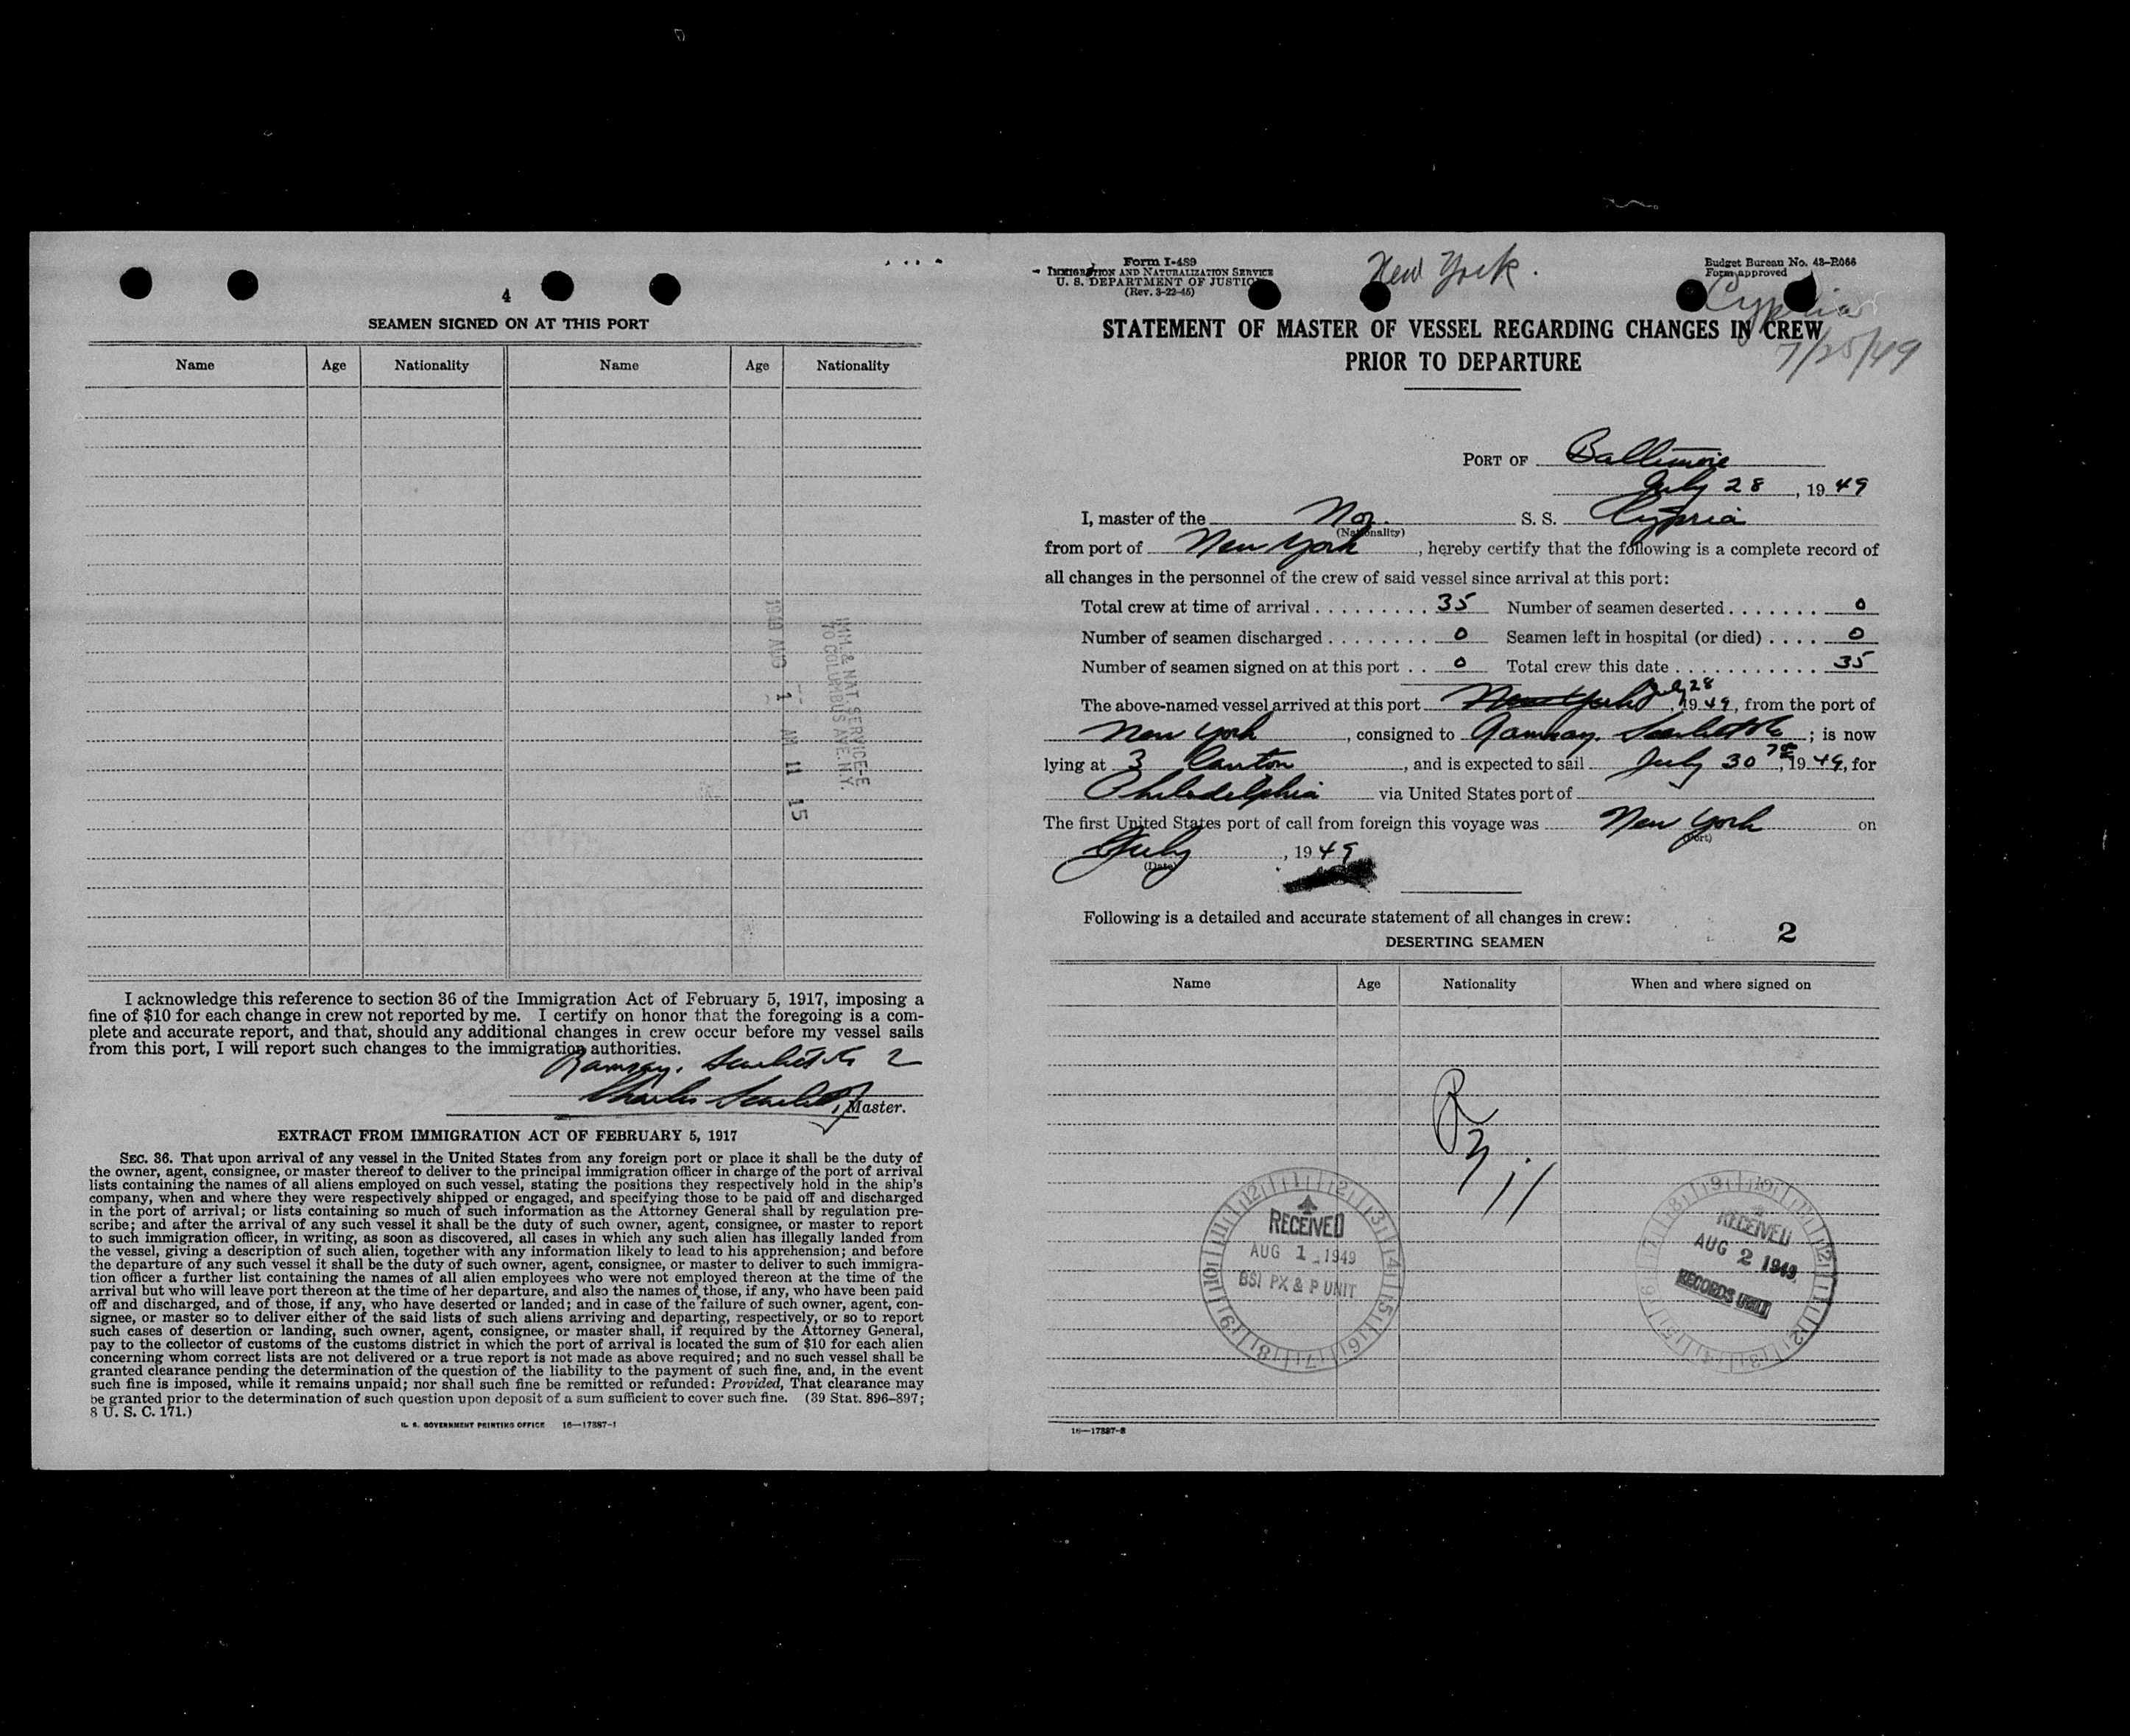 4
SEAMEN SIGNED ON AT THIS PORT
Name Age Nationality Name Age Nationality
IMM. & NAT. SERVICE
70 COLUMBUS AVE. N.Y.
1949 AUG 1 AM 11 15
I acknowledge this reference to section 36 of the Immigration Act of February 5, 1917, imposing a
fine of $10 for each change in crew not reported by me. I certify on honor that the foregoing is a com-
plete and accurate report, and that, should any additional changes in crew occur before my vessel sails
from this port, I will report such changes to the immigration authorities.
Ramsay, Scarlett Co
Charles Scarlett, Master.
EXTRACT FROM IMMIGRATION ACT OF FEBRUARY 5, 1917
SEC. 36. That upon arrival of any vessel in the United States from any foreign port or place it shall be the duty of
the owner, agent, consignee, or master thereof to deliver to the principal immigration officer in charge of the port of arrival
lists containing the names of all aliens employed on such vessel, stating the positions they respectively hold in the ship's
company, when and where they were respectively shipped or engaged, and specifying those to be paid off and discharged
in the port of arrival; or lists containing so much of such information as the Attorney General shall by regulation pre-
scribe; and after the arrival of any such vessel it shall be the duty of such owner, agent, consignee, or master to report
to such immigration officer, in writing, as soon as discovered, all cases in which any such alien has illegally landed from
the vessel, giving a description of such alien, together with any information likely to lead to his apprehension; and before
the departure of any such vessel it shall be the duty of such owner, agent, consignee, or master to deliver to such immigra-
tion officer a further list containing the names of all alien employees who were not employed thereon at the time of the
arrival but who will leave port thereon at the time of her departure, and also the names of those, if any, who have been paid
off and discharged, and of those, if any, who have deserted or landed; and in case of the failure of such owner, agent, con-
signee, or master so to deliver either of the said lists of such aliens arriving and departing, respectively, or so to report
such cases of desertion or landing, such owner, agent, consignee, or master shall, if required by the Attorney General,
pay to the collector of customs of the customs district in which the port of arrival is located the sum of $10 for each alien
concerning whom correct lists are not delivered or a true report is not made as above required; and no such vessel shall be
granted clearance pending the determination of the question of the liability to the payment of such fine, and, in the event
such fine is imposed, while it remains unpaid; nor shall such fine be remitted or refunded: Provided, That clearance may
be granted prior to the determination of such question upon deposit of a sum sufficient to cover such fine. (39 Stat. 896-897;
8 U. S. C. 171.)
U. S. GOVERNMENT PRINTING OFFICE 16—17887-1
Form I-489
IMMIGRATION AND NATURALIZATION SERVICE
U. S. DEPARTMENT OF JUSTICE
(Rev. 3-22-45)
New York.
Budget Bureau No. 43-R066
Form approved
Cypria
7/25/49
STATEMENT OF MASTER OF VESSEL REGARDING CHANGES IN CREW
PRIOR TO DEPARTURE
PORT OF Baltimore
July 28, 1949
I, master of the Nor. S. S. Cypria
(Nationality)
from port of New York, hereby certify that the following is a complete record of
all changes in the personnel of the crew of said vessel since arrival at this port:
Total crew at time of arrival 35 Number of seamen deserted 0
Number of seamen discharged 0 Seamen left in hospital (or died) 0
Number of seamen signed on at this port 0 Total crew this date 35
The above-named vessel arrived at this port New York July 28, 1949, from the port of
New York, consigned to Ramsay, Scarlett Co; is now
lying at 3 Canton, and is expected to sail July 30, 1949, for
Philadelphia via United States port of
The first United States port of call from foreign this voyage was New York on
(Port)
July, 1949
(Date)
Following is a detailed and accurate statement of all changes in crew:
DESERTING SEAMEN 2
Name Age Nationality When and where signed on
Nil
RECEIVED
AUG 1 1949
BSI PX & P UNIT
RECEIVED
AUG 2 1949
RECORDS UNIT
16—17887-2